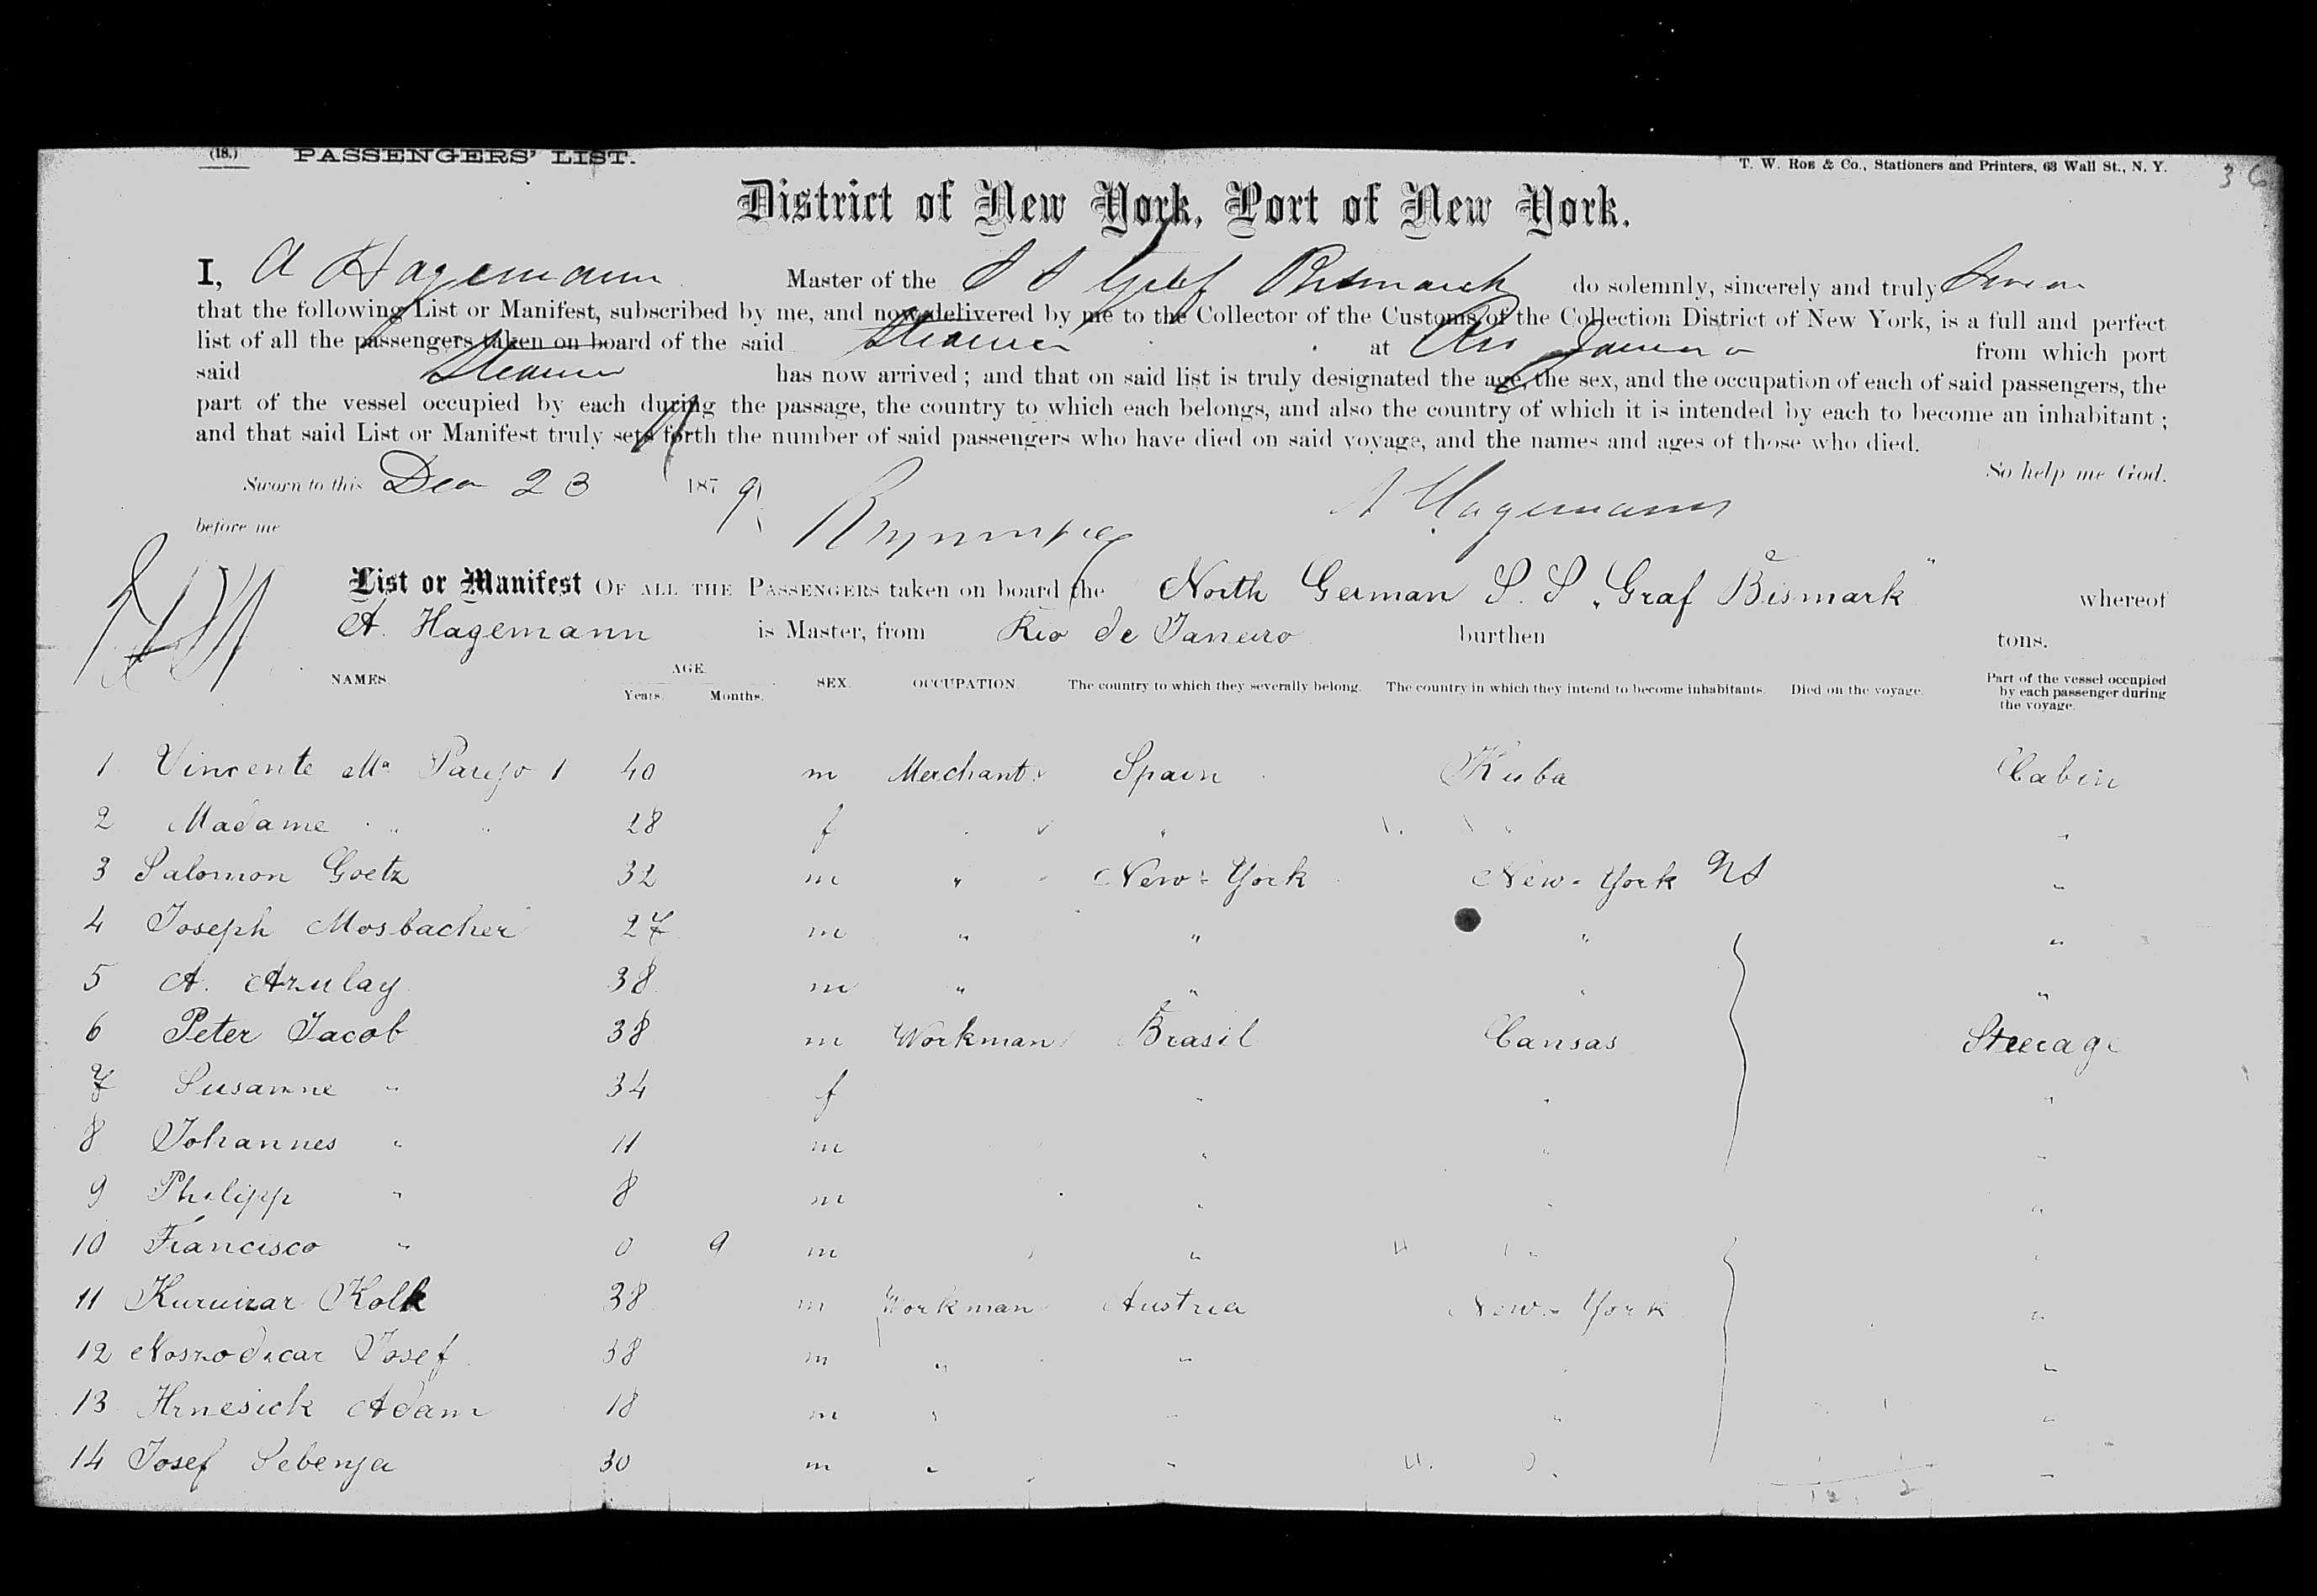 (18.) PASSENGERS' LIST. T. W. Roe & Co., Stationers and Printers, 63 Wall St., N. Y. 36
District of New York, Port of New York.
I, A Hagemann Master of the S S Graf Bismarck do solemnly, sincerely and truly Swear
that the following List or Manifest, subscribed by me, and now delivered by me to the Collector of the Customs of the Collection District of New York, is a full and perfect
list of all the passengers taken on board of the said Steamer at Rio Janeiro from which port
said Steamer has now arrived; and that on said list is truly designated the age, the sex, and the occupation of each of said passengers, the
part of the vessel occupied by each during the passage, the country to which each belongs, and also the country of which it is intended by each to become an inhabitant;
and that said List or Manifest truly sets forth the number of said passengers who have died on said voyage, and the names and ages of those who died.
So help me God.
Sworn to this Dec 23 1879
A Hagemann
before me
List or Manifest OF ALL THE PASSENGERS taken on board the North German S. S. „Graf Bismark" whereof
A. Hagemann is Master, from Rio de Janeiro burthen tons.
NAMES. AGE. Years. Months. SEX. OCCUPATION. The country to which they severally belong. The country in which they intend to become inhabitants. Died on the voyage. Part of the vessel occupied by each passenger during the voyage.
1 Vincente Ma Parejo 1 40 m Merchant Spain Kuba Cabin
2 Madame " " 28 f " " "
3 Salomon Goetz 32 m " New-York New-York "
4 Joseph Mosbacher 27 m " " " "
5 A. Azulay 38 m " " " "
6 Peter Jacob 38 m Workman Brasil Cansas Steerage
7 Susanne " 34 f " " "
8 Johannes " 11 m " " "
9 Philipp " 8 m " " "
10 Francisco " 0 9 m " " "
11 Kuruizar Kolk 38 m Workman Austria New-York "
12 Josef 38 m " " " "
13 Hrnesick Adam 18 m " " " "
14 Josef Sebenja 30 m " " " "